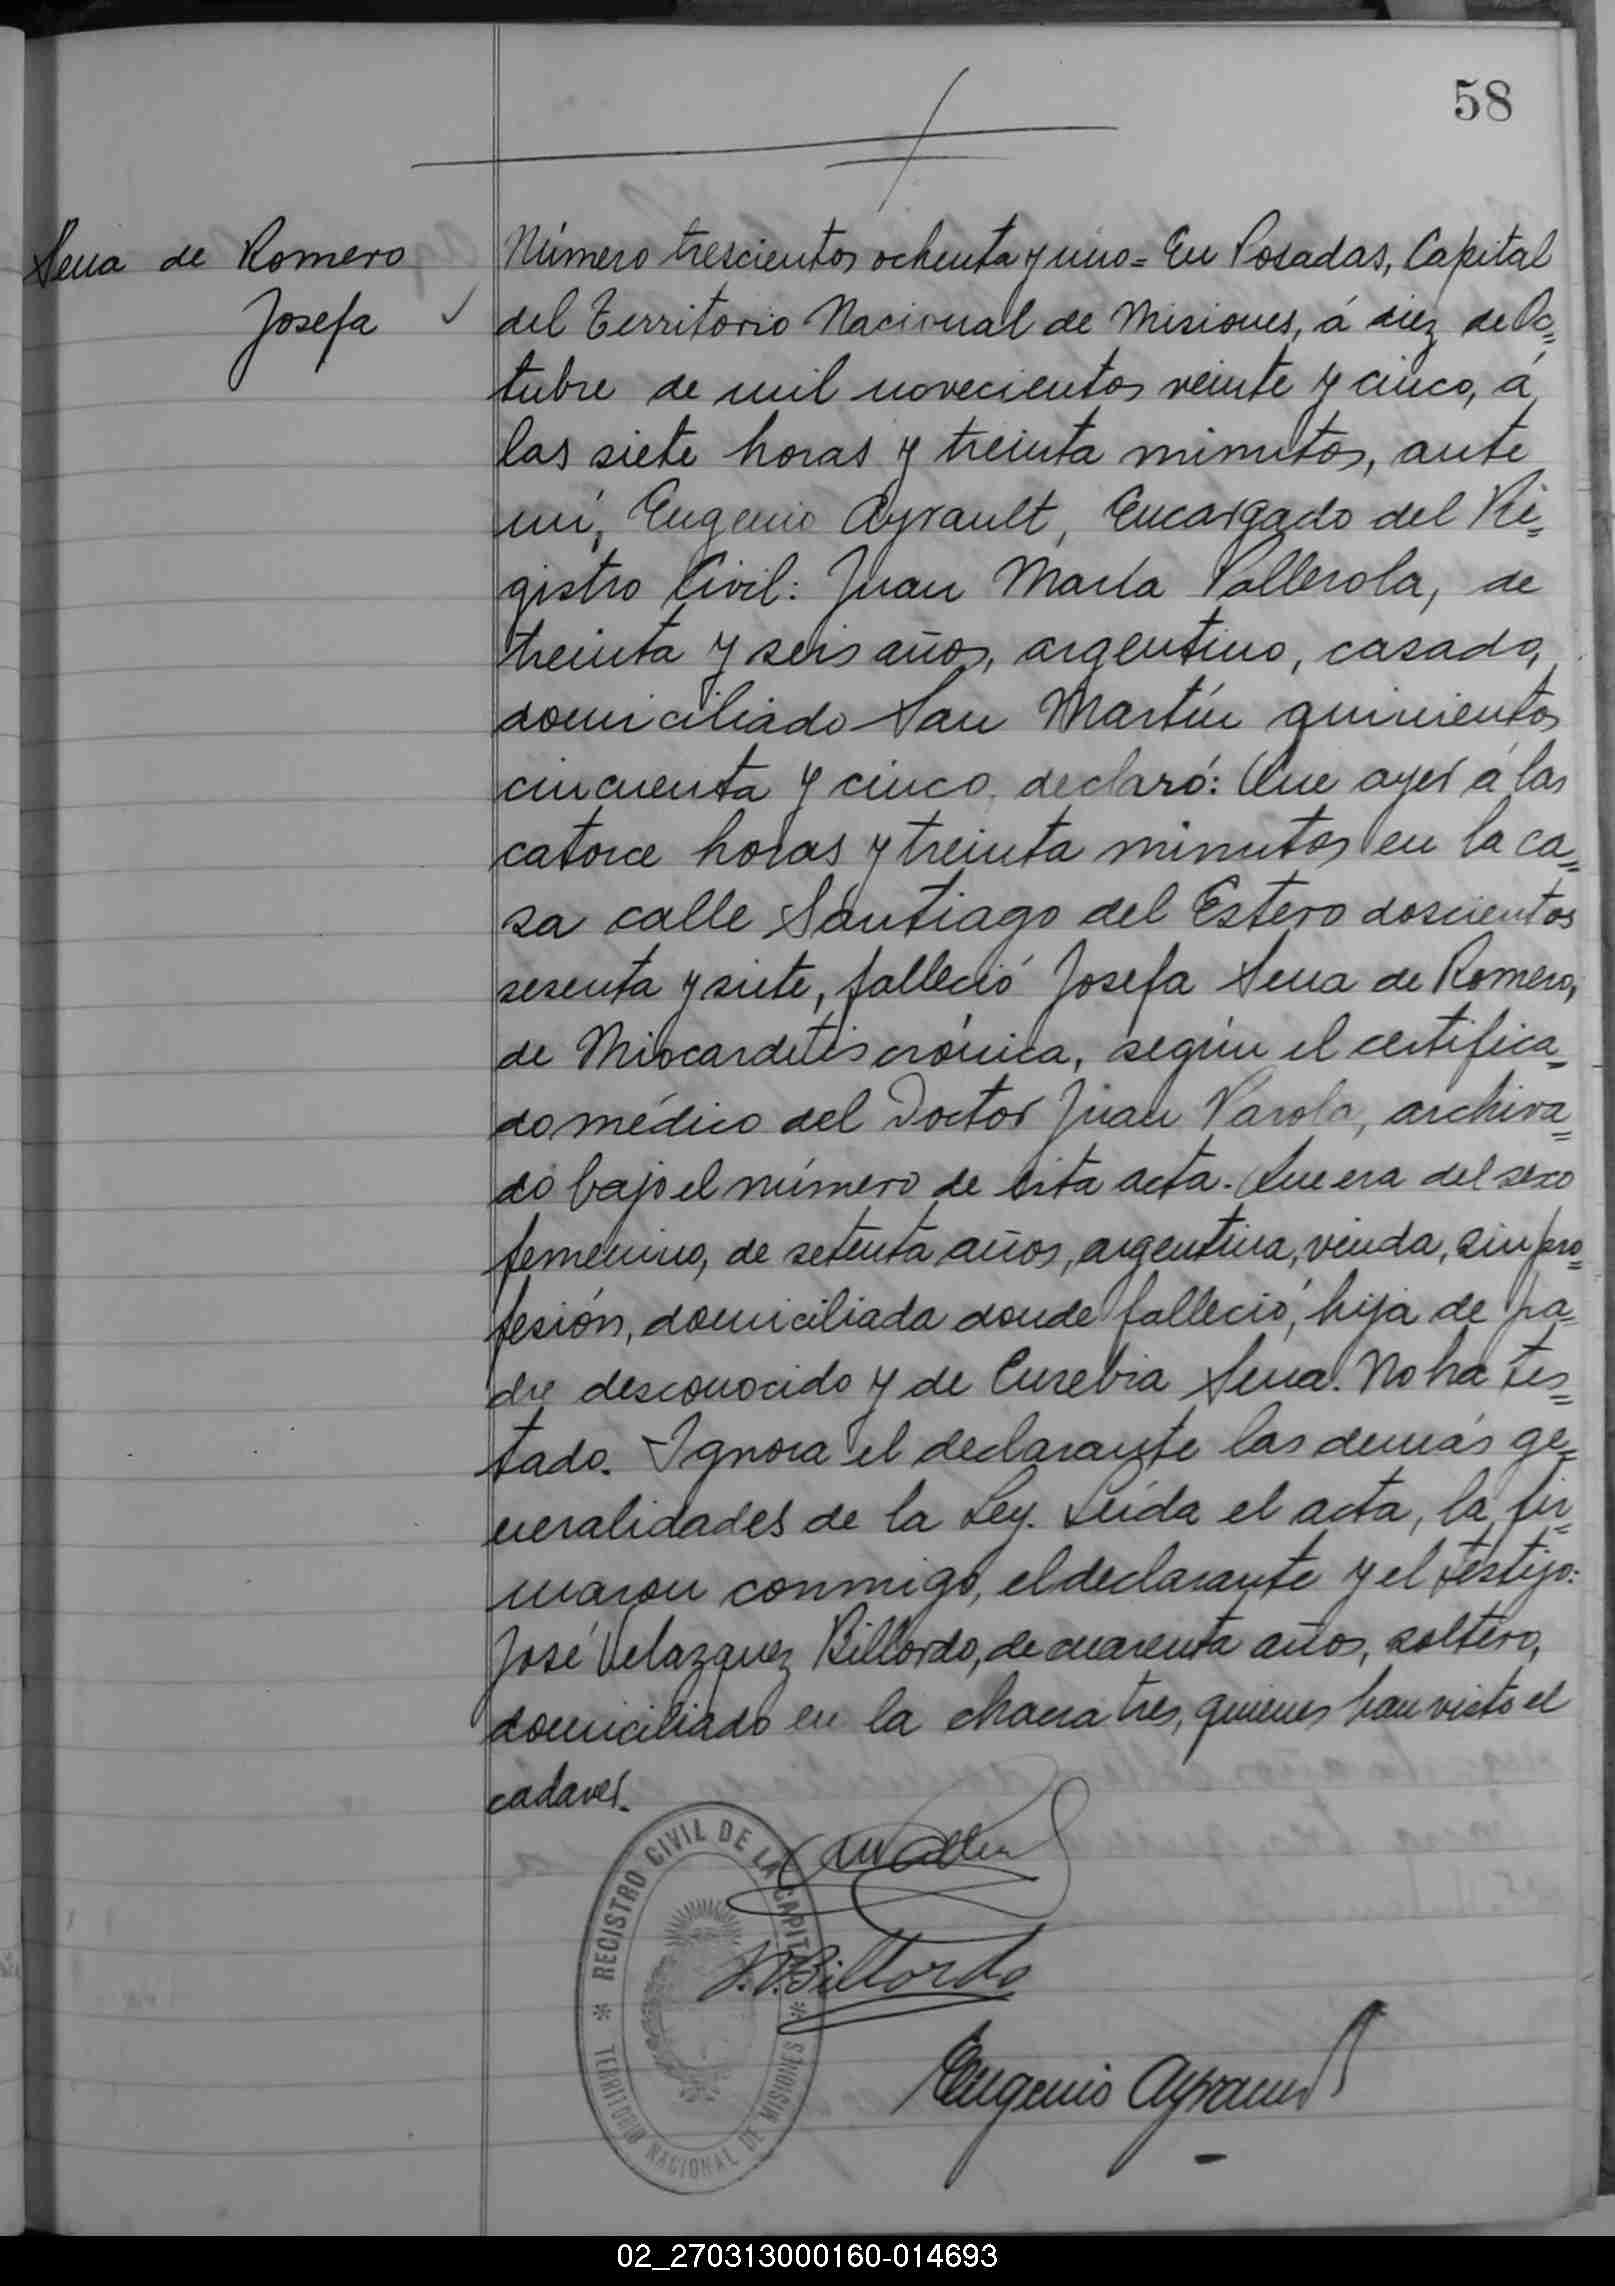 58
Sena de Romero
Josefa ✓
Número trescientos ochenta y uno = En Posadas, Capital
del Territorio Nacional de Misiones, á diez de Oc=
tubre de mil novecientos veinte y cinco, á
las siete horas y treinta minutos, ante
mí, Eugenio Ayrault, Encargado del Re=
gistro Civil: Juan María Pallerola, de
treinta y seis años, argentino, casado,
domiciliado San Martín quinientos
cincuenta y cinco, declaró: Que ayer á las
catorce horas y treinta minutos en la ca=
sa calle Santiago del Estero doscientos
sesenta y siete, falleció Josefa Sena de Romero,
de Miocarditis crónica, según el certifica=
do médico del Doctor Juan Parola, archiva=
do bajo el número de esta acta. Que era del sexo
femenino, de setenta años, argentina, viuda, sin pro=
fesión, domiciliada donde falleció, hija de pa=
dre desconocido y de Eusebia Sena. No ha tes=
tado. Ignora el declarante las demás ge=
neralidades de la Ley. Leída el acta, la fir=
maron conmigo, el declarante y el testigo:
José Velazquez Billordo, de cuarenta años, soltero,
domiciliado en la chacra tres, quienes han visto el
cadaver.
J.V. Billordo
Eugenio Ayrault
REGISTRO CIVIL DE LA CAPITAL
* TERRITORIO NACIONAL DE MISIONES *
02_270313000160-014693